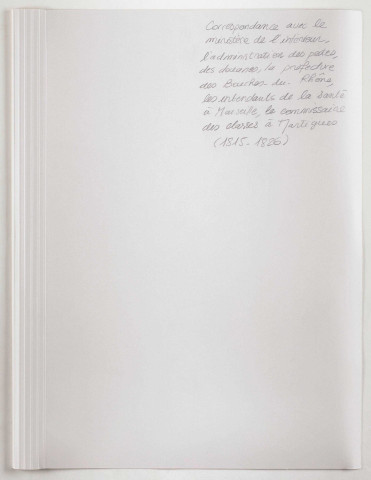 Correspondance avec le
ministère de l'intérieur,
l'administration des postes,
des douanes, la préfecture
des Bouches du Rhône,
les intendants de la santé
à Marseille, le commissaire
des classes à Martigues
(1815-1826)